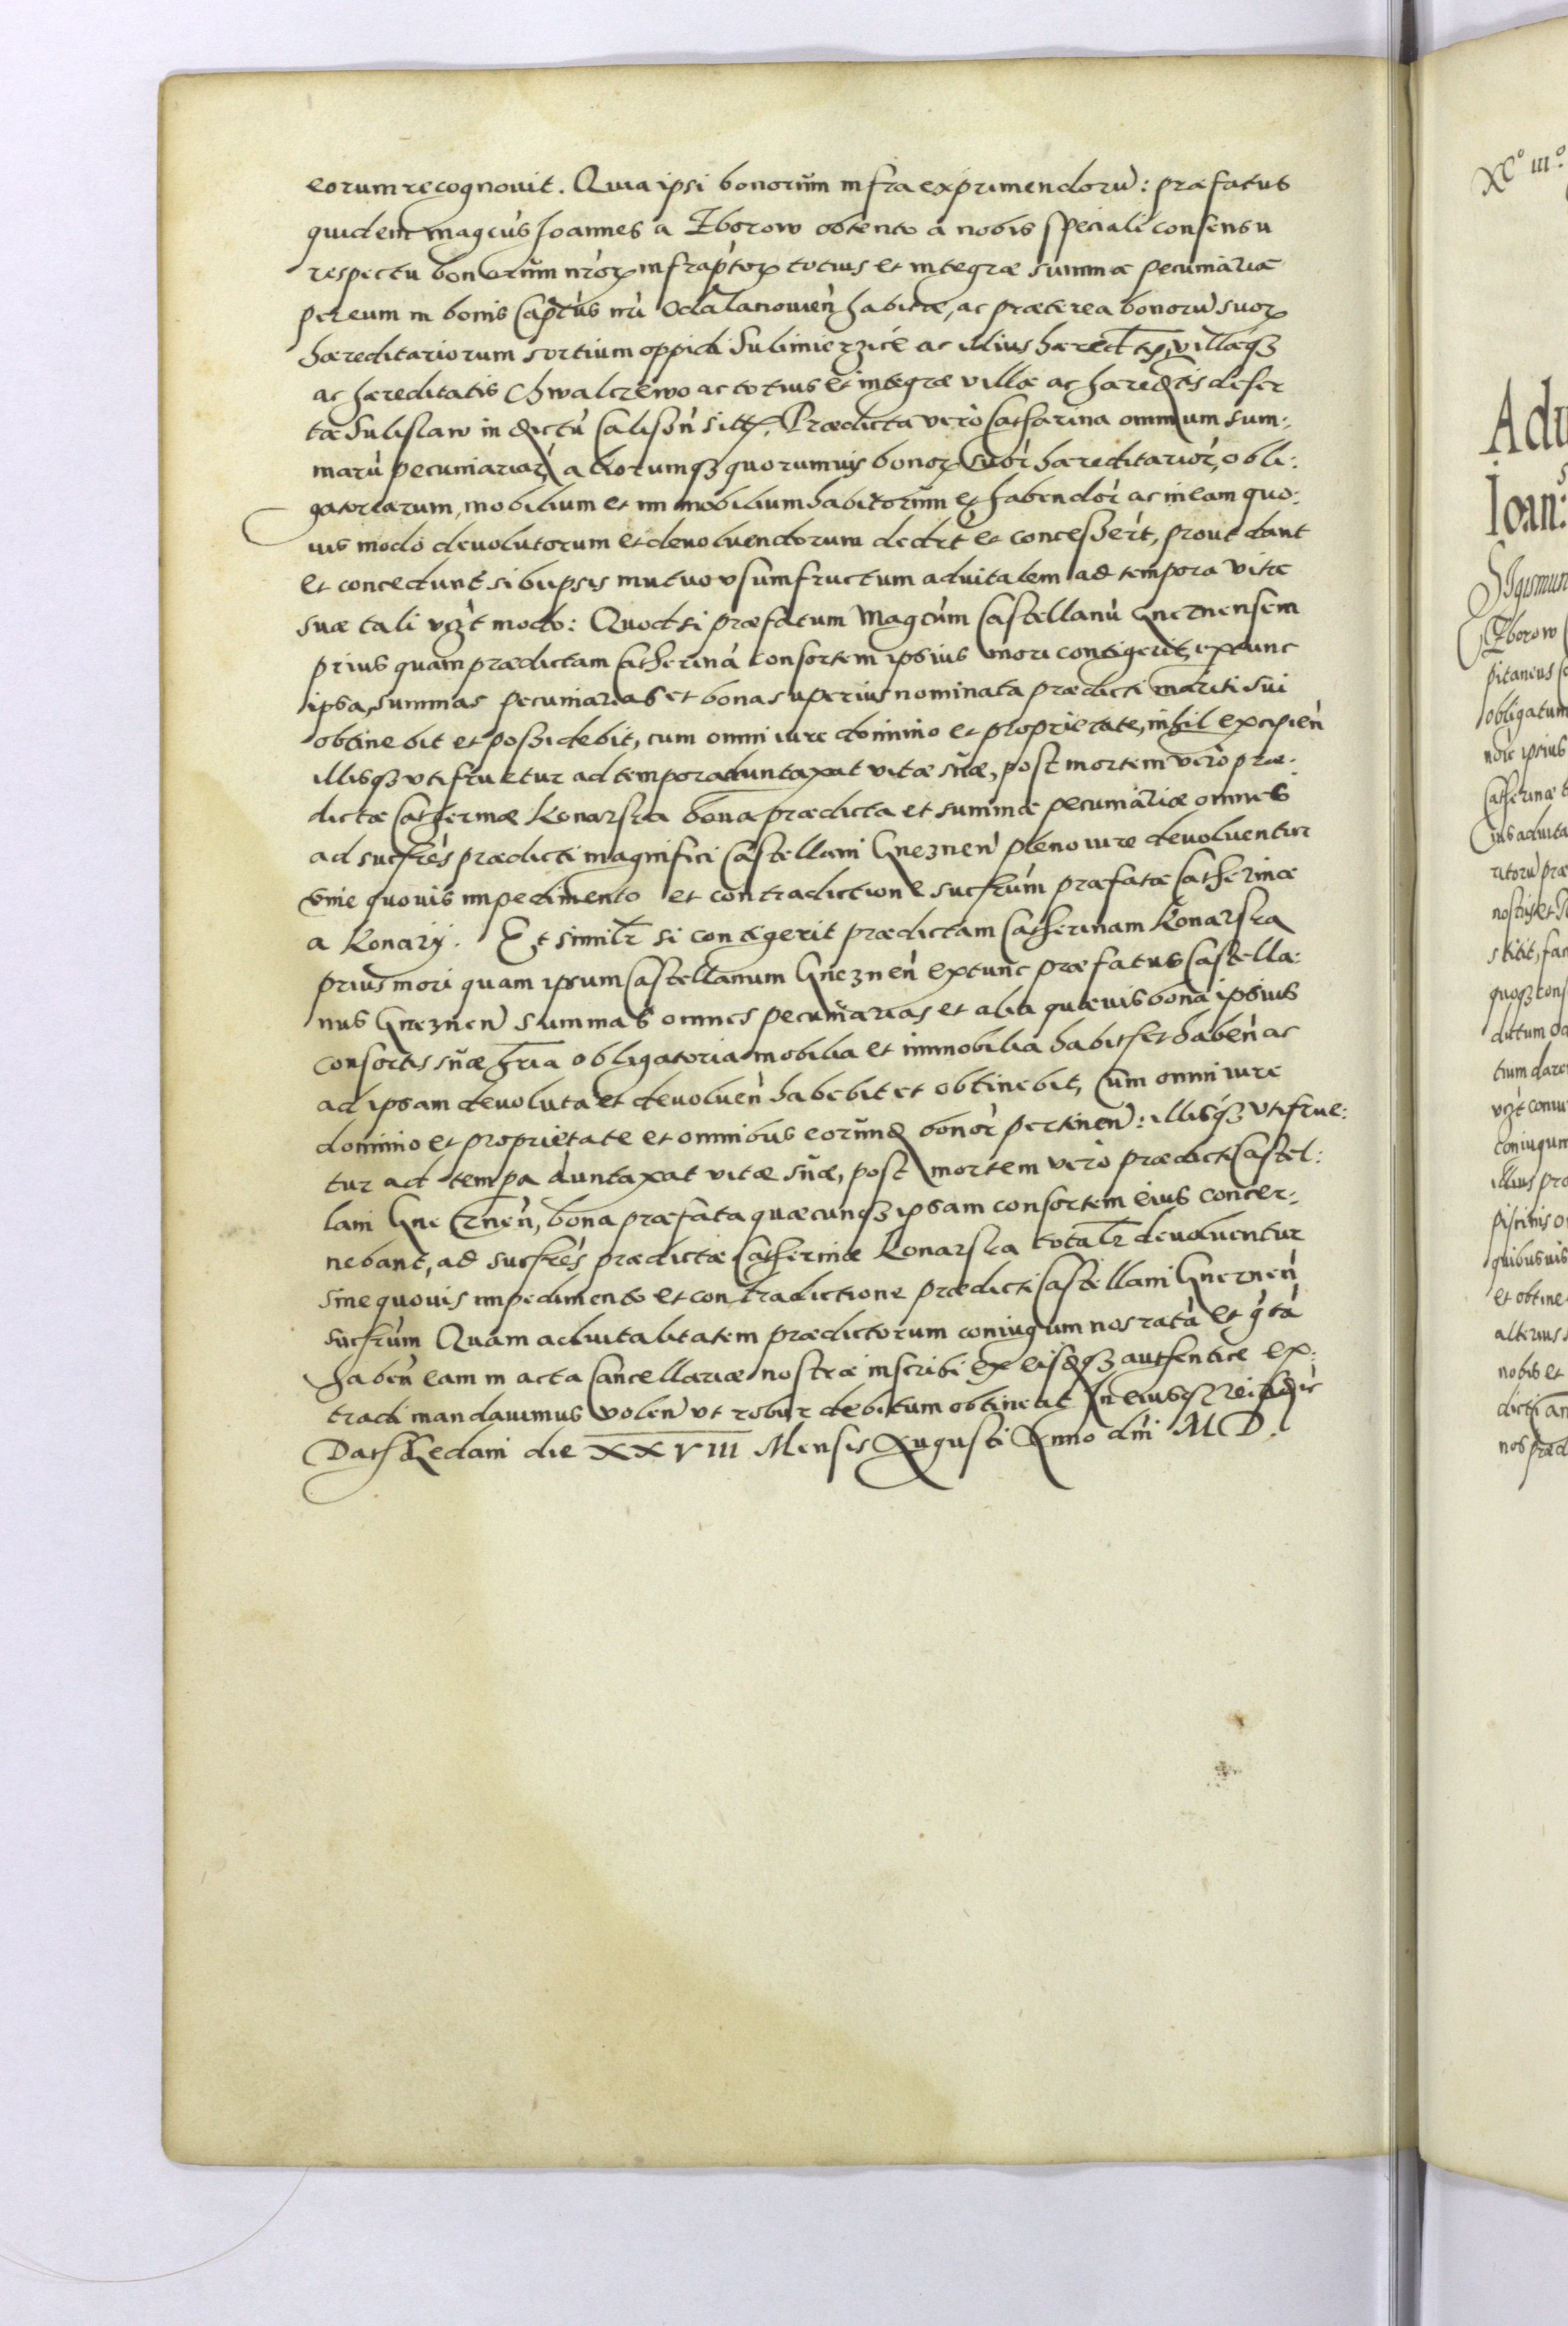 eorum recognovit. Quia ipsi bonorum̃ infra exprimendorũ: præfatus
quidem magcus Joannes a Zborow obtento à nobis speciali consensu
respectu bonorum nrõꝝ infraptoꝝ totius et integræ summæ pecuniariæ
per eum in bonis captus nri Odalanouien habitæ, ac præterea bonorũ suoꝝ
hæreditariorum sortium oppidi Sulimierzice ac illius hæredt̃, villæqꝫ
ac hæreditatis Chwalczewo ac totius et integræ villæ ac hæredtis deser
tæ Sulislaw in dictũ Calisõn sitt. Prædicta verò Catharina omnium sum:
marũ pecuniariar̃, aliorumqꝫ quorumuis bonoꝝ suor̃ hæreditarior̃, obli:
gatoriarum, mobilium et immobilium habitorum̃ et habendor̃ ac in eam quo:
uis modo devolutorum et devoluendorum dedert et concesserit, prout dant
et concedunt sibi ipsis mutuo vsumfructum aduitalem ad tempora vitæ
suæ tali vꝫt modo: Quod si præfatum Magcũm Castellanũ Gneznensem
prius quam prædictam Catherinã consortem ipsius mori contigerit, extunc
ipsa, summas pecuniarias et bona superius nominata prædicti mariti sui
obtinebit et possidebit, cum omni iure dominio et proprietate, nihil excipien̄
illisqꝫ vtifruetur ad tempora duntaxat vitæ suæ, post mortem verò præ:
dictæ Catherinæ Konarska bona prædicta et summæ pecuniariæ omnes
ad succres prædicti magnifici Castellani Gneznen̄ pleno iure devoluentur
sine quouis impedimento et contradictione succrum præfatæ Catherinæ
a Konarÿ. Et similr̃ si contigerit prædictam Catherinam Konarska
prius mori quam ipsum Castellanum Gneznen̄ extunc præfatus Castella:
nus Gneznen̄ summas omnes pecuniarias et alia quævis bona ipsius
consortis suæ hr̃ia obligatoria mobilia et immobilia habit et haben̄ ac
ad ipsam devoluta et devoluen̄ habebit et obtinebit, cum omni iure
dominio et proprietate et omnibus eorund bonor̃ pertinen̄: illisqꝫ vtifrue:
tur ad tempa duntaxat vitæ suæ, post mortem verò prædicti Castel:
lani Gneznen̄, bona præfata quæcunqꝫ ipsam consortem eius concer:
nebant, ad succres prædictæ Catherinæ Konarska totalr̃ devoluentur
sine quouis impedimento et contradictione prædicti Castellani Gneznen̄
succrum Quam aduitalitatem prædictorum coniugum nos ratã et gtã
haben̄ eam in acta Cancellariæ nostræ inscribi ex eisdqꝫ authentice ex:
tradi mandauimus volen̄ vt robur debitum obtineat In eiusqꝫ rei
Dat Gedani die XXVIII Mensis Augusti Anno dni M D.
Xcº IIIº
Adu
Joan:
Sigismun
Zborow
pitaneus
obligatum
ipsius
Catherinæ
ius aduita
ritorũ præ
nostris et
stitit, fa
quoqꝫ cons
dictum
tium dare
vꝫt coniu
coniugum
illius pro
piscinis
quibusuis
et obtine
alterius
nobis et
dicti
nos præd